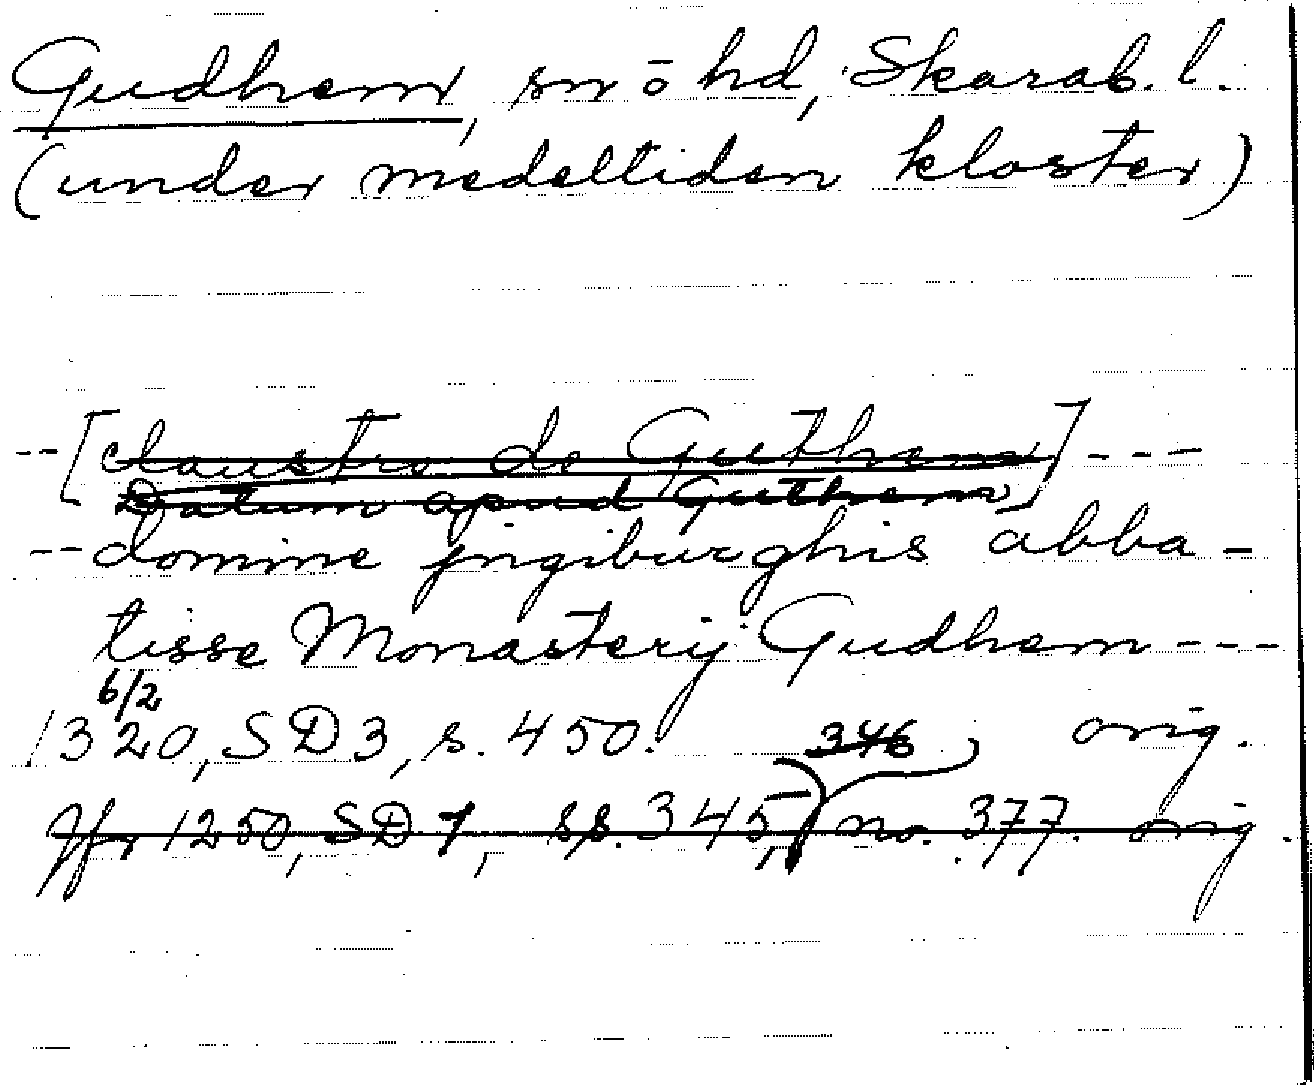 Gudhem, sn ō hd, Skarab. l.
(under medeltiden kloster)
--[claustro de Guthem]---
Datum apud Guthem
--domine jngiburghis abba-
tisse Monasterij Gudhem---
6/2
1320, SD3, s. 450. 346 orig.
Jfr 1250, SD 1, ss. 345, no. 377. orig.